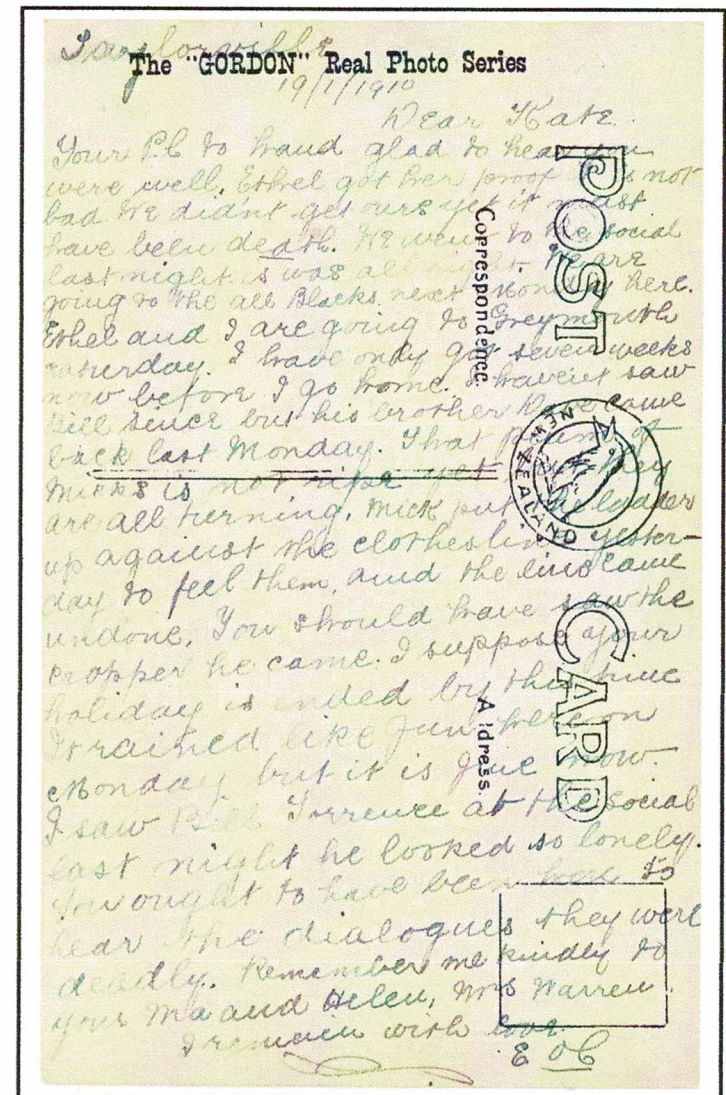 Taylorville
The "GORDON" Real Photo Series
19/1/1910
Dear Kate.
Your P.C to hand glad to hear you
were well. Ethel got her proof it is not
bad We didn't get ours yet it must
have been death. We went to the social
last night is was all right. We are
going to the all Blacks next Monday here.
Ethel and I are going to Greymouth
saturday. I have only got seven weeks
now before I go home. I havent saw
Bill since but his brother have came
back last Monday. That of
Micks is not ripe yet but they
are all turning. Mick put the ladder
up against the clothes line yester-
day to feel them, and the line came
undone. You should have saw the
cropper he came. I suppose your
holiday is ended by this time
It rained like fun here on
Monday but it is fine now.
I saw Bill Torrence at the social
last night he looked so lonely.
You ought to have been here to
hear the dialogues they were
deadly. Remember me kindly to
your Ma and Helen, Mrs Warren.
I remain with love.
E OC
POST CARD
Correspondence.
Address.
NEW ZEALAND